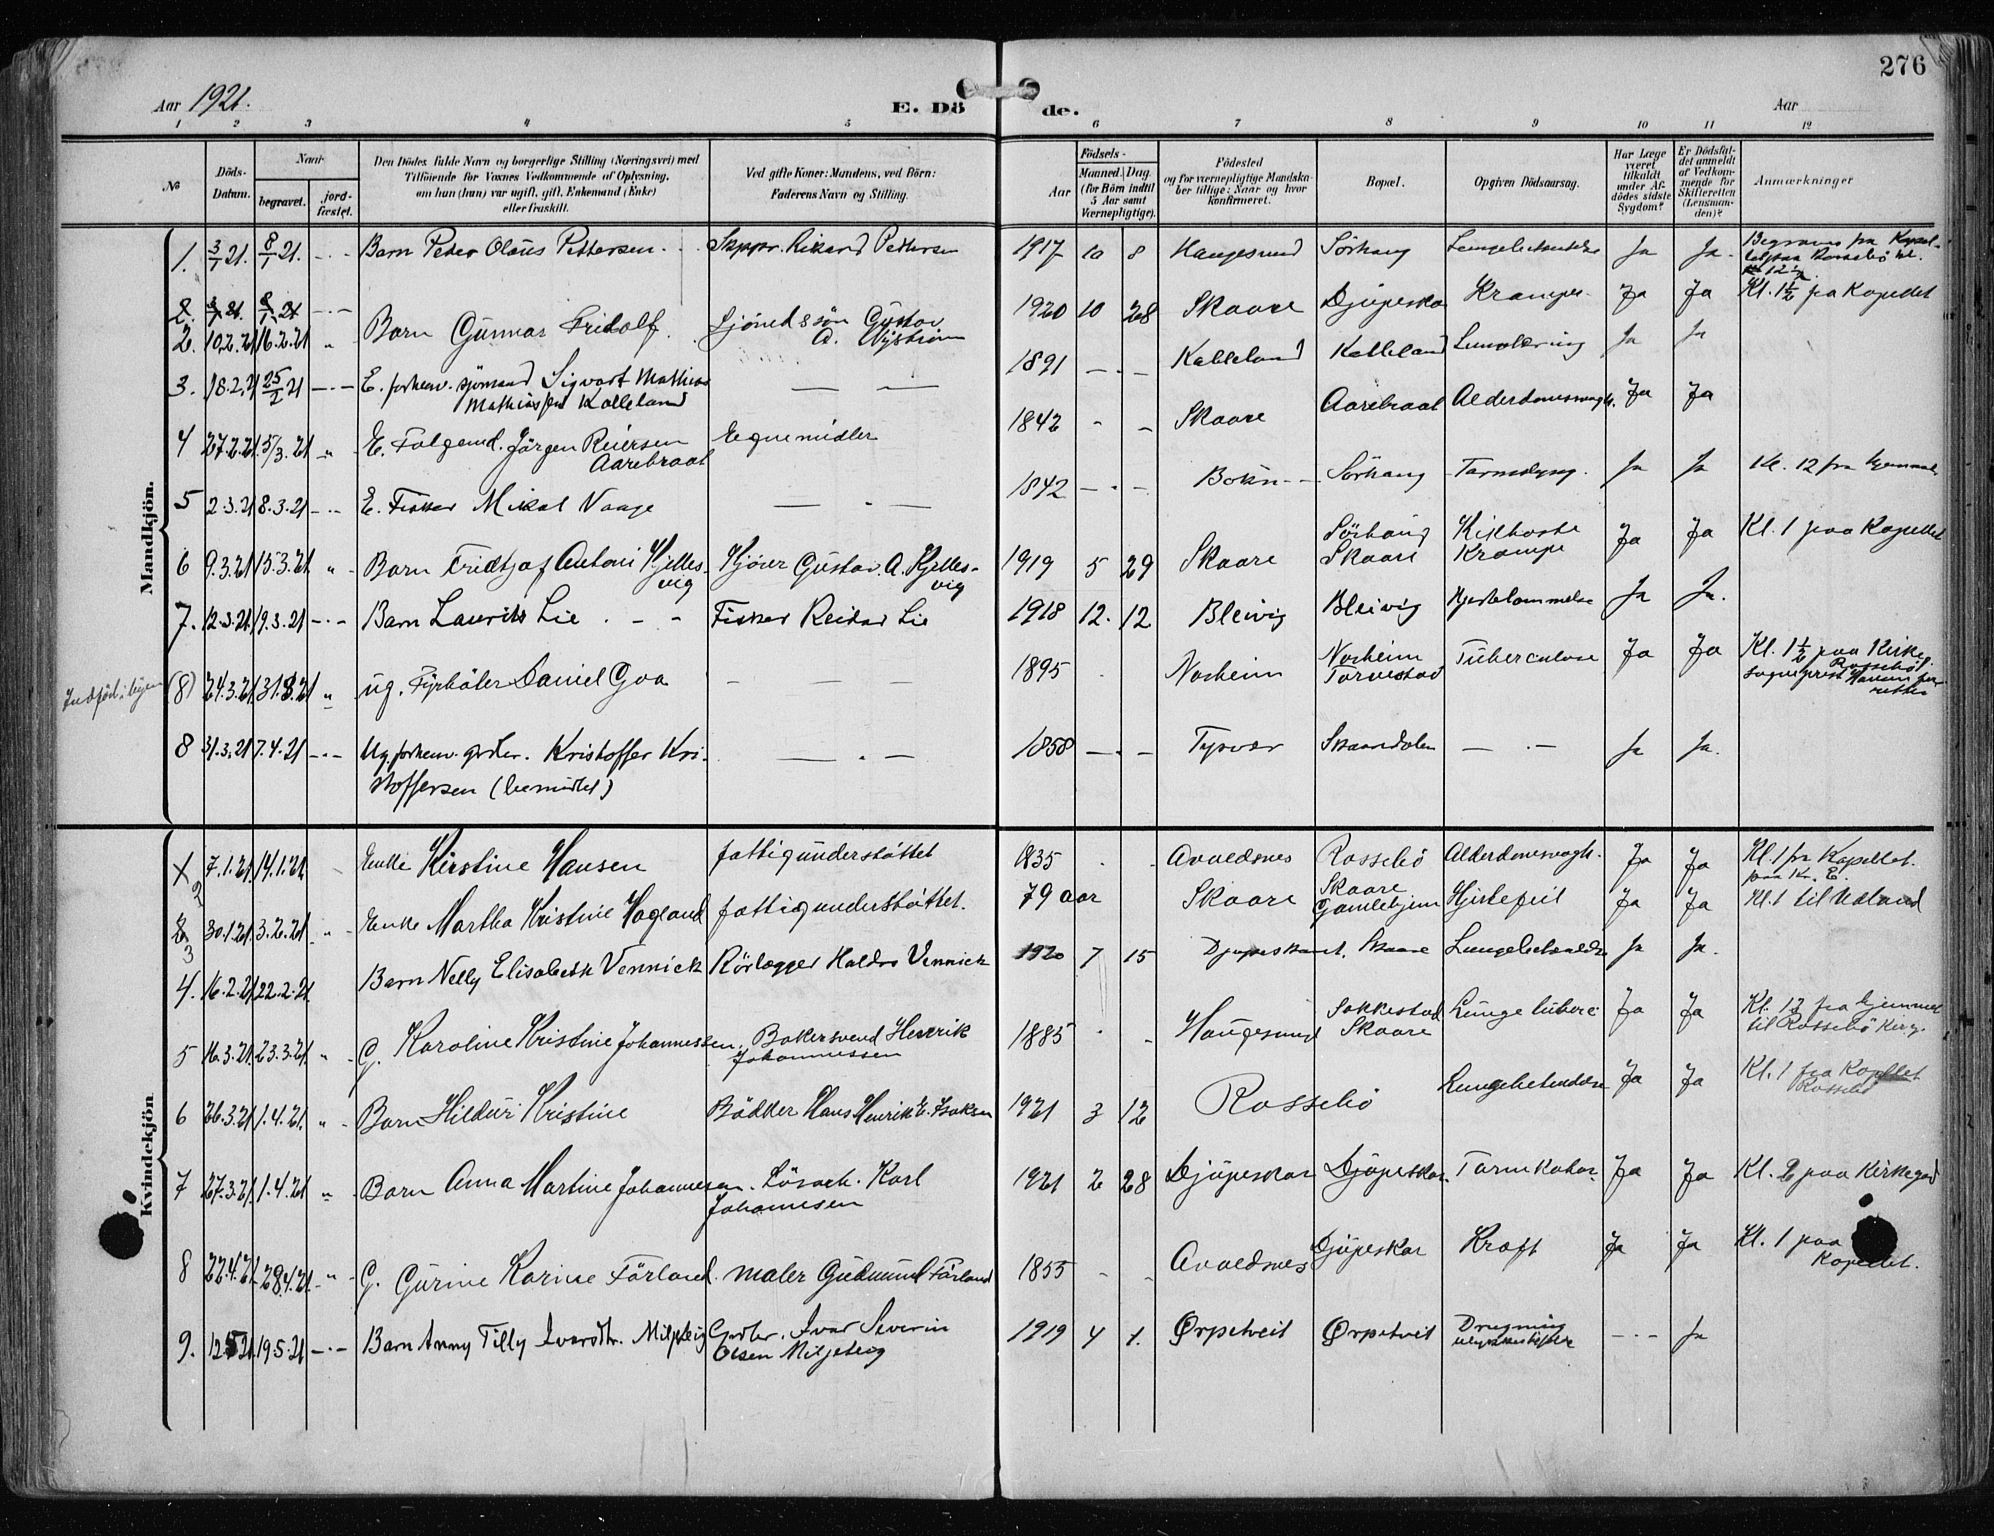 276
Aar 1921.
E. Dö de.
Aar
1 2 3 4 5 6 7 8 9 10 11 12
№
Döds-
Datum.
Naar
begravet.
jord-
fæstet.
Den Dödes fulde Navn og borgerlige Stilling (Næringsvei) med
Tilföiende for Voxnes Vedkommende af Oplysning,
om han (hun) var ugift, gift, Enkemand (Enke)
eller fraskilt.
Ved gifte Koner: Mandens, ved Börn:
Faderens Navn og Stilling.
Födsels-
Aar
Maaned. Dag.
(for Börn indtil
5 Aar samt
Værnepligtige).
Födested
og for værnepligtige Mandska-
ber tillige: Naar og hvor
konfirmeret.
Bopæl.
Opgiven Dödsaarsag.
Har Læge
været
tilkaldt
under Af-
dödes sidste
Sygdom?
Er Dödsfal-
det anmeldt
af Vedkom-
mende for
Skifteretten
(Lensman-
den)?
Anmærkninger
Mandkjön.
1. 3/1 21. 8/1 21. Barn Peter Olaus Pettersen Skippr. Rikard Pettersen 1917 10 8 Haugesund Sörhaug Lungebetændelse Ja Ja.
2. 3/1 21 8/1 21
2. 10.2.21 16.2.21 " Barn Gunnar Fridolf Gustav
A. Nyström 1920 10 28 Skaare Djupeskar Kramper Ja Ja Kl. 1½ pa Kapellet
3. 18.2.21 25/2 21 E. forhenv. sjömand Sigvart Mathias
Mathiassen Kalleland 1891 Kalleland Kalleland Ja Ja
4 27.2.21 5/3.21 " E. Jörgen Reiersen
Aarebraat Egne midler 1842 Skaare Aarebraat Alderdomsvagh. Ja Ja
5 2.3.21 8.3.21 E. Fisker Mikal Vaage 1842 Bokn Sörhaug Ja Ja Kl. 12 fra hjemmet
6 9.3.21 15.3.21 " Barn Fridtjof Antoni Hjelles-
vig Gustav. A. Hjelles-
vig 1919 5 29 Skaare Sörhaug
Skaare Kikhoste
Krampe Ja Ja Kl. 1 paa Kapellet
7. 12.3.21 19.3.21 Barn Laurits Lie Fisker Reidar Lie 1918 12. 12 Bleivig Bleivig Ja Ja.
Indförl. i byen (8) 24.3.21 31.3.21 " ug. Fyrböter Daniel Goa 1895 Norheim Norheim
Torvestad Tuberculose Ja Ja Kl. 1½ paa Kirkeg.
Rossebö.
sogneprest
8 31.3.21 7.4.21 Ug. forhenv. grdbr. Kristoffer Kri-
stoffersen (bemidlet) 1858 Tysvær Skaaredalen Ja Ja.
Kvindekjön
1 7.1.21 14.1.21 Enke Kirstine Hansen fattigunderstöttet 1835 Avaldsnes Rossebö Alderdomsvagh. Ja Ja Kl. 1 fra Kapellet.
2 30.1.21 3.2.21 Enke Martha Kristine Hagland fattigunderstöttet. 79 aar Skaare Skaare
Gamlehjem Hjertefeil Ja Ja Kl. 1 til Udland
3
4. 16.2.21 22.2.21 Barn Nelly Elisabeth Vennick Rörlægger Haldor Vennick 1920 7 15 Djupeskaret, Skaare Lungebetændelse Ja Ja.
5 16.3.21 23.3.21 " G. Karoline Kristine Johannessen. Bakersvend Henrik
Johannessen 1885 Haugesund Sakkestad
Skaare Lungetuberc Ja Ja Kl. 12 fra hjemmet
til Rossebö Kirkg.
6 26.3.21 1.4.21. " Barn Hildur Kristine Bödker Hans Henrik E. Isaksen 1921 3 12 Rossebö Lungebetændelse Ja Ja Kl. 1 fra Kapellet
Rossebö
7 27.3.21 1.4.21 " Barn Anna Martine Johannesen. Lösarb. Karl
Johannesen 1921 2 28 Djupeskar Djupeskar. Tarmkatar Ja Ja Kl. 2 paa Kirkegad
8 22.4.21 28.4.21 " G. Gurine Karine Förland. Maler Gudmund Förland 1855 Avaldsnes Djupeskar Kræft Ja Ja Kl. 1 paa
Kapellet.
9. 12.5.21 19.5.21 Barn Anny Tilly Ivarsdtr. Miljeteig Grdbr. Ivar Severin
Olsen Miljeteig 1919 4 1. Ørpetveit Ørpetveit Drugning
ulykkestilfælde Ja